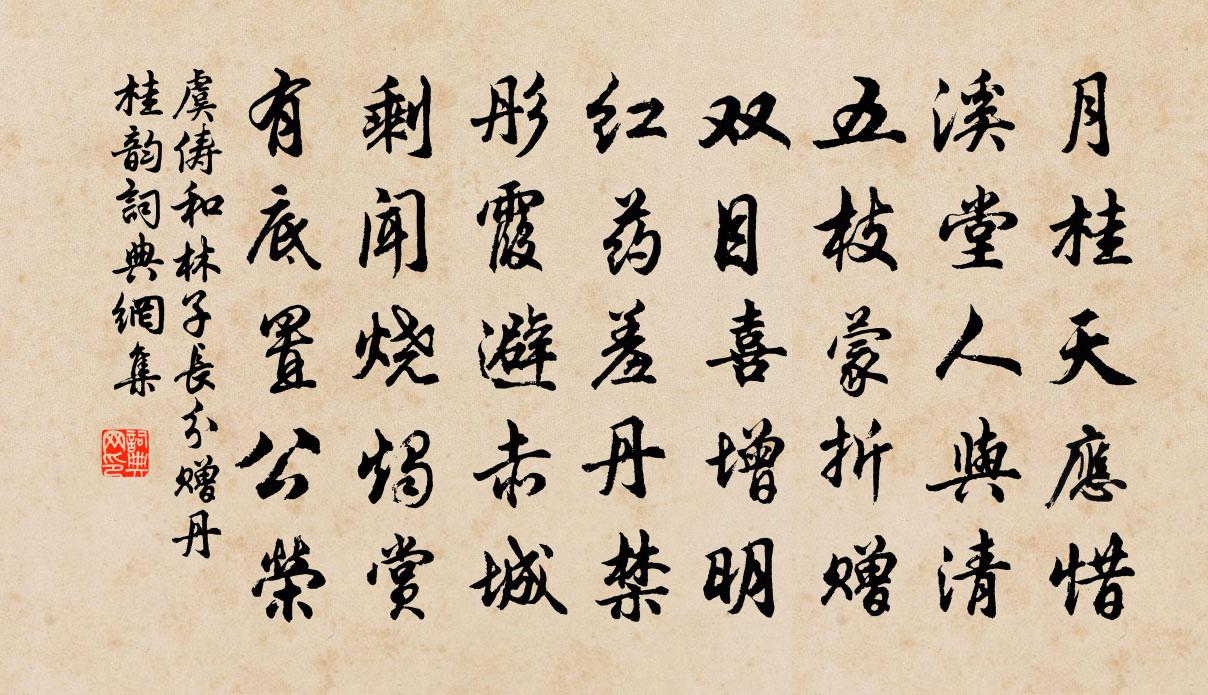 月桂天應惜
溪堂人與清
五枝蒙折赠
双目喜增明
红药羞丹禁
彤霞避赤城
剩闻烧烛赏
有底置公榮
虞俦和林子長分赠丹
桂韵詞典網集
詞典
网印